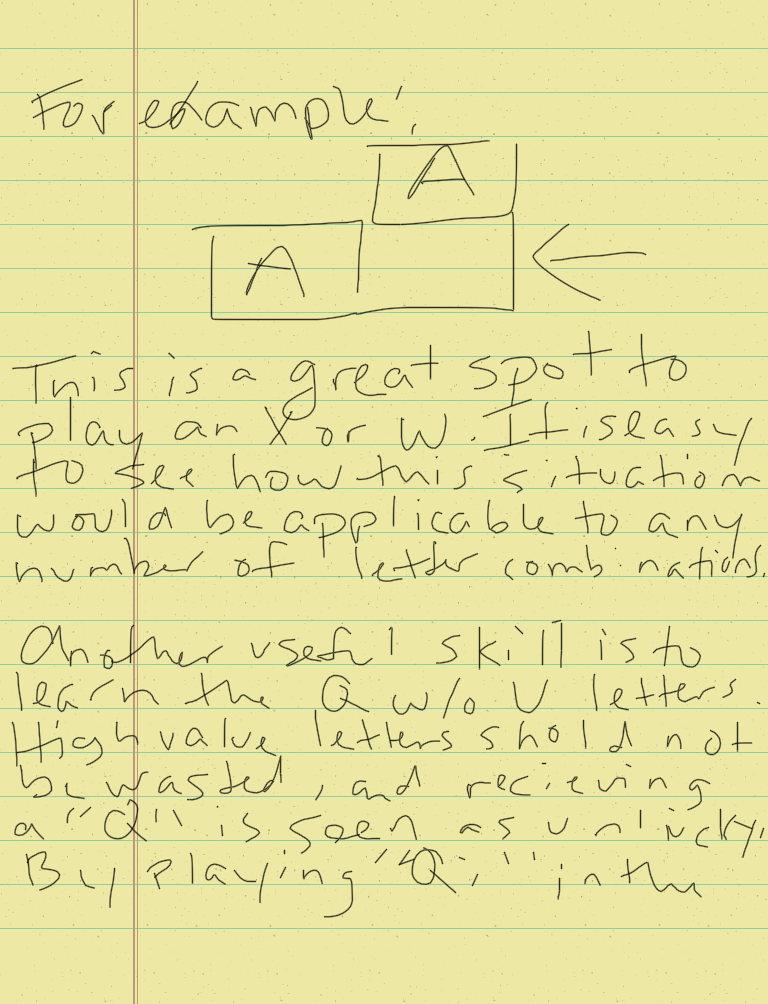 For example:
A
A
This is a great spot to
play an X or W. It is easy
to see how this situation
would be applicable to any
number of letter comb nations.
Another useful skill is to
learn the Q w/o U letters.
High value letters should not
be wasted, and recieving
a "Q" is seen as unlucky.
By playing "Qi" in the